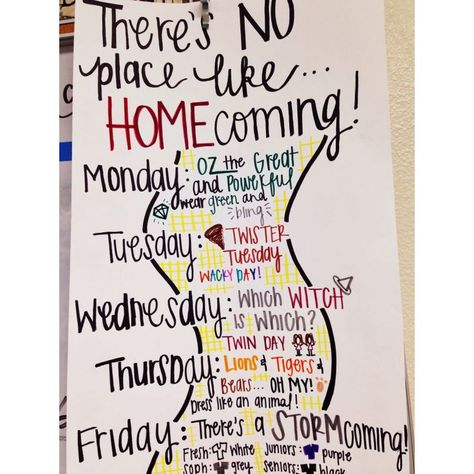 THERE'S NO
place like...
HOMEcoming!
Monday: OZ the Great
and Powerful
wear green and
bling
Tuesday: TWISTER
Tuesday
WACKY DAY!
Wednesday: Which WITCH
is Which?
TWIN DAY
Thursday: Lions & Tigers &
Bears... OH MY!
Dress like an animal!
Friday: There's a STORMcoming!
Fresh: white Juniors: purple
Soph: grey Seniors: black